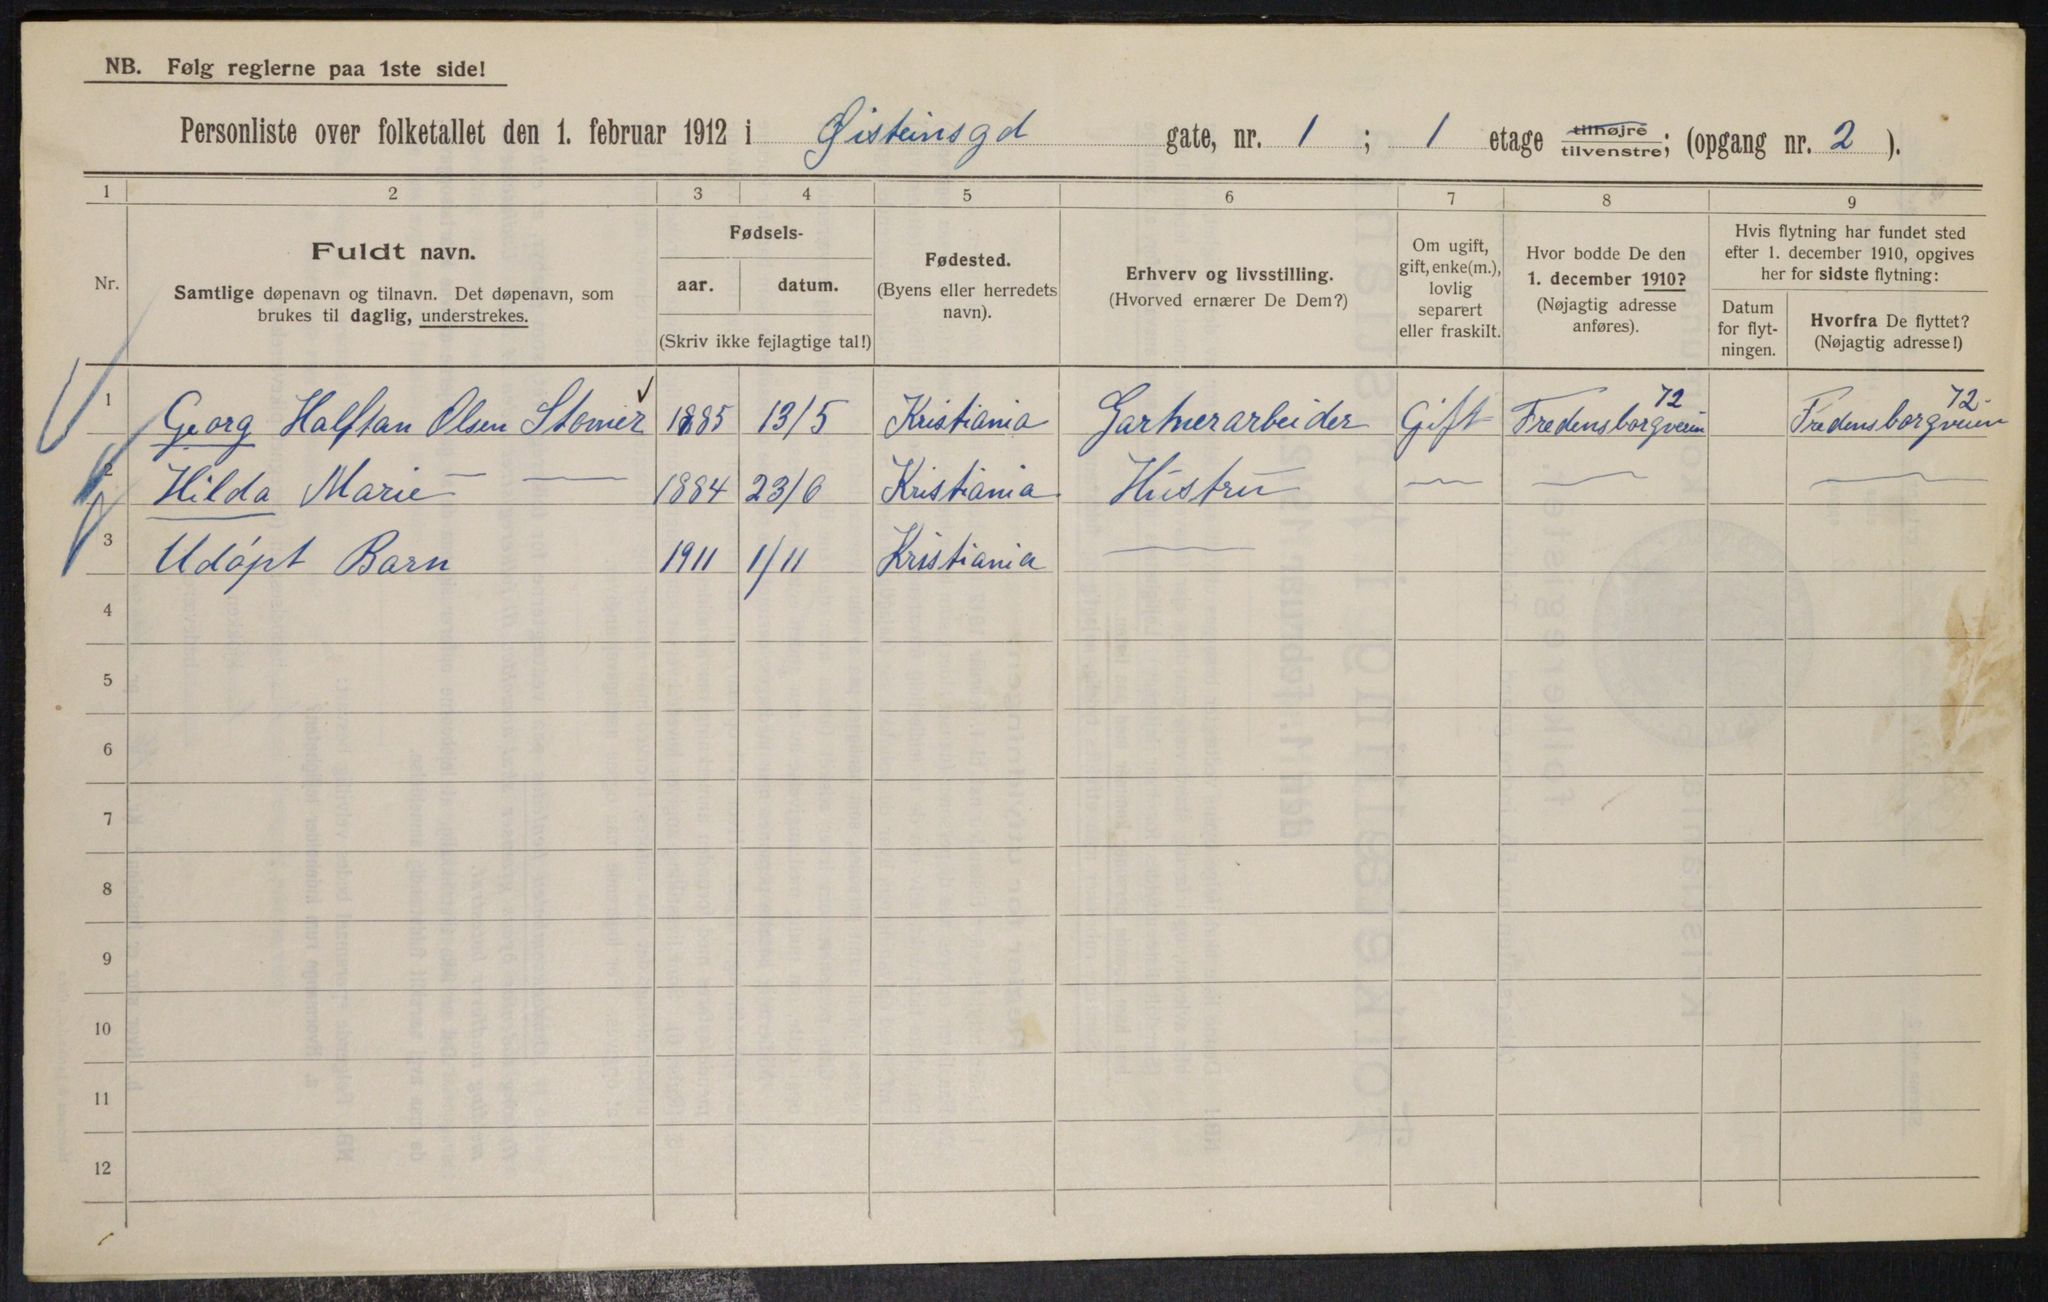 NB. Følg reglerne paa 1ste side!
Personliste over folketallet den 1. februar 1912 i Øisteinsgd gate, nr. 1 ; 1 etage tilhøjre tilvenstre; (opgang nr. 2 ).
1 2 3 4 5 6 7 8 9
Nr.
Fuldt navn.
Samtlige døpenavn og tilnavn. Det døpenavn, som
brukes til daglig, understrekes.
Fødsels-
aar. datum.
(Skriv ikke fejlagtige tal!)
Fødested.
(Byens eller herredets
navn).
Erhverv og livsstilling.
(Hvorved ernærer De Dem?)
Om ugift,
gift, enke(m.),
lovlig
separert
eller fraskilt.
Hvor bodde De den
1. december 1910?
(Nøjagtig adresse
anføres).
Hvis flytning har fundet sted
efter 1. december 1910, opgives
her for sidste flytning:
Datum
for flyt-
ningen.
Hvorfra De flyttet?
(Nøjagtig adresse!)
1 Georg Halftan Olsen 1885 13/5 Kristiania Gartnerarbeider Gift Fredensborgveien 72 Fredensborgveien 72
2 Hilda Marie — — 1884 23/6 Kristiania Hustru — — —
3 Udøpt Barn 1911 1/11 Kristiania —
4
5
6
7
8
9
10
11
12